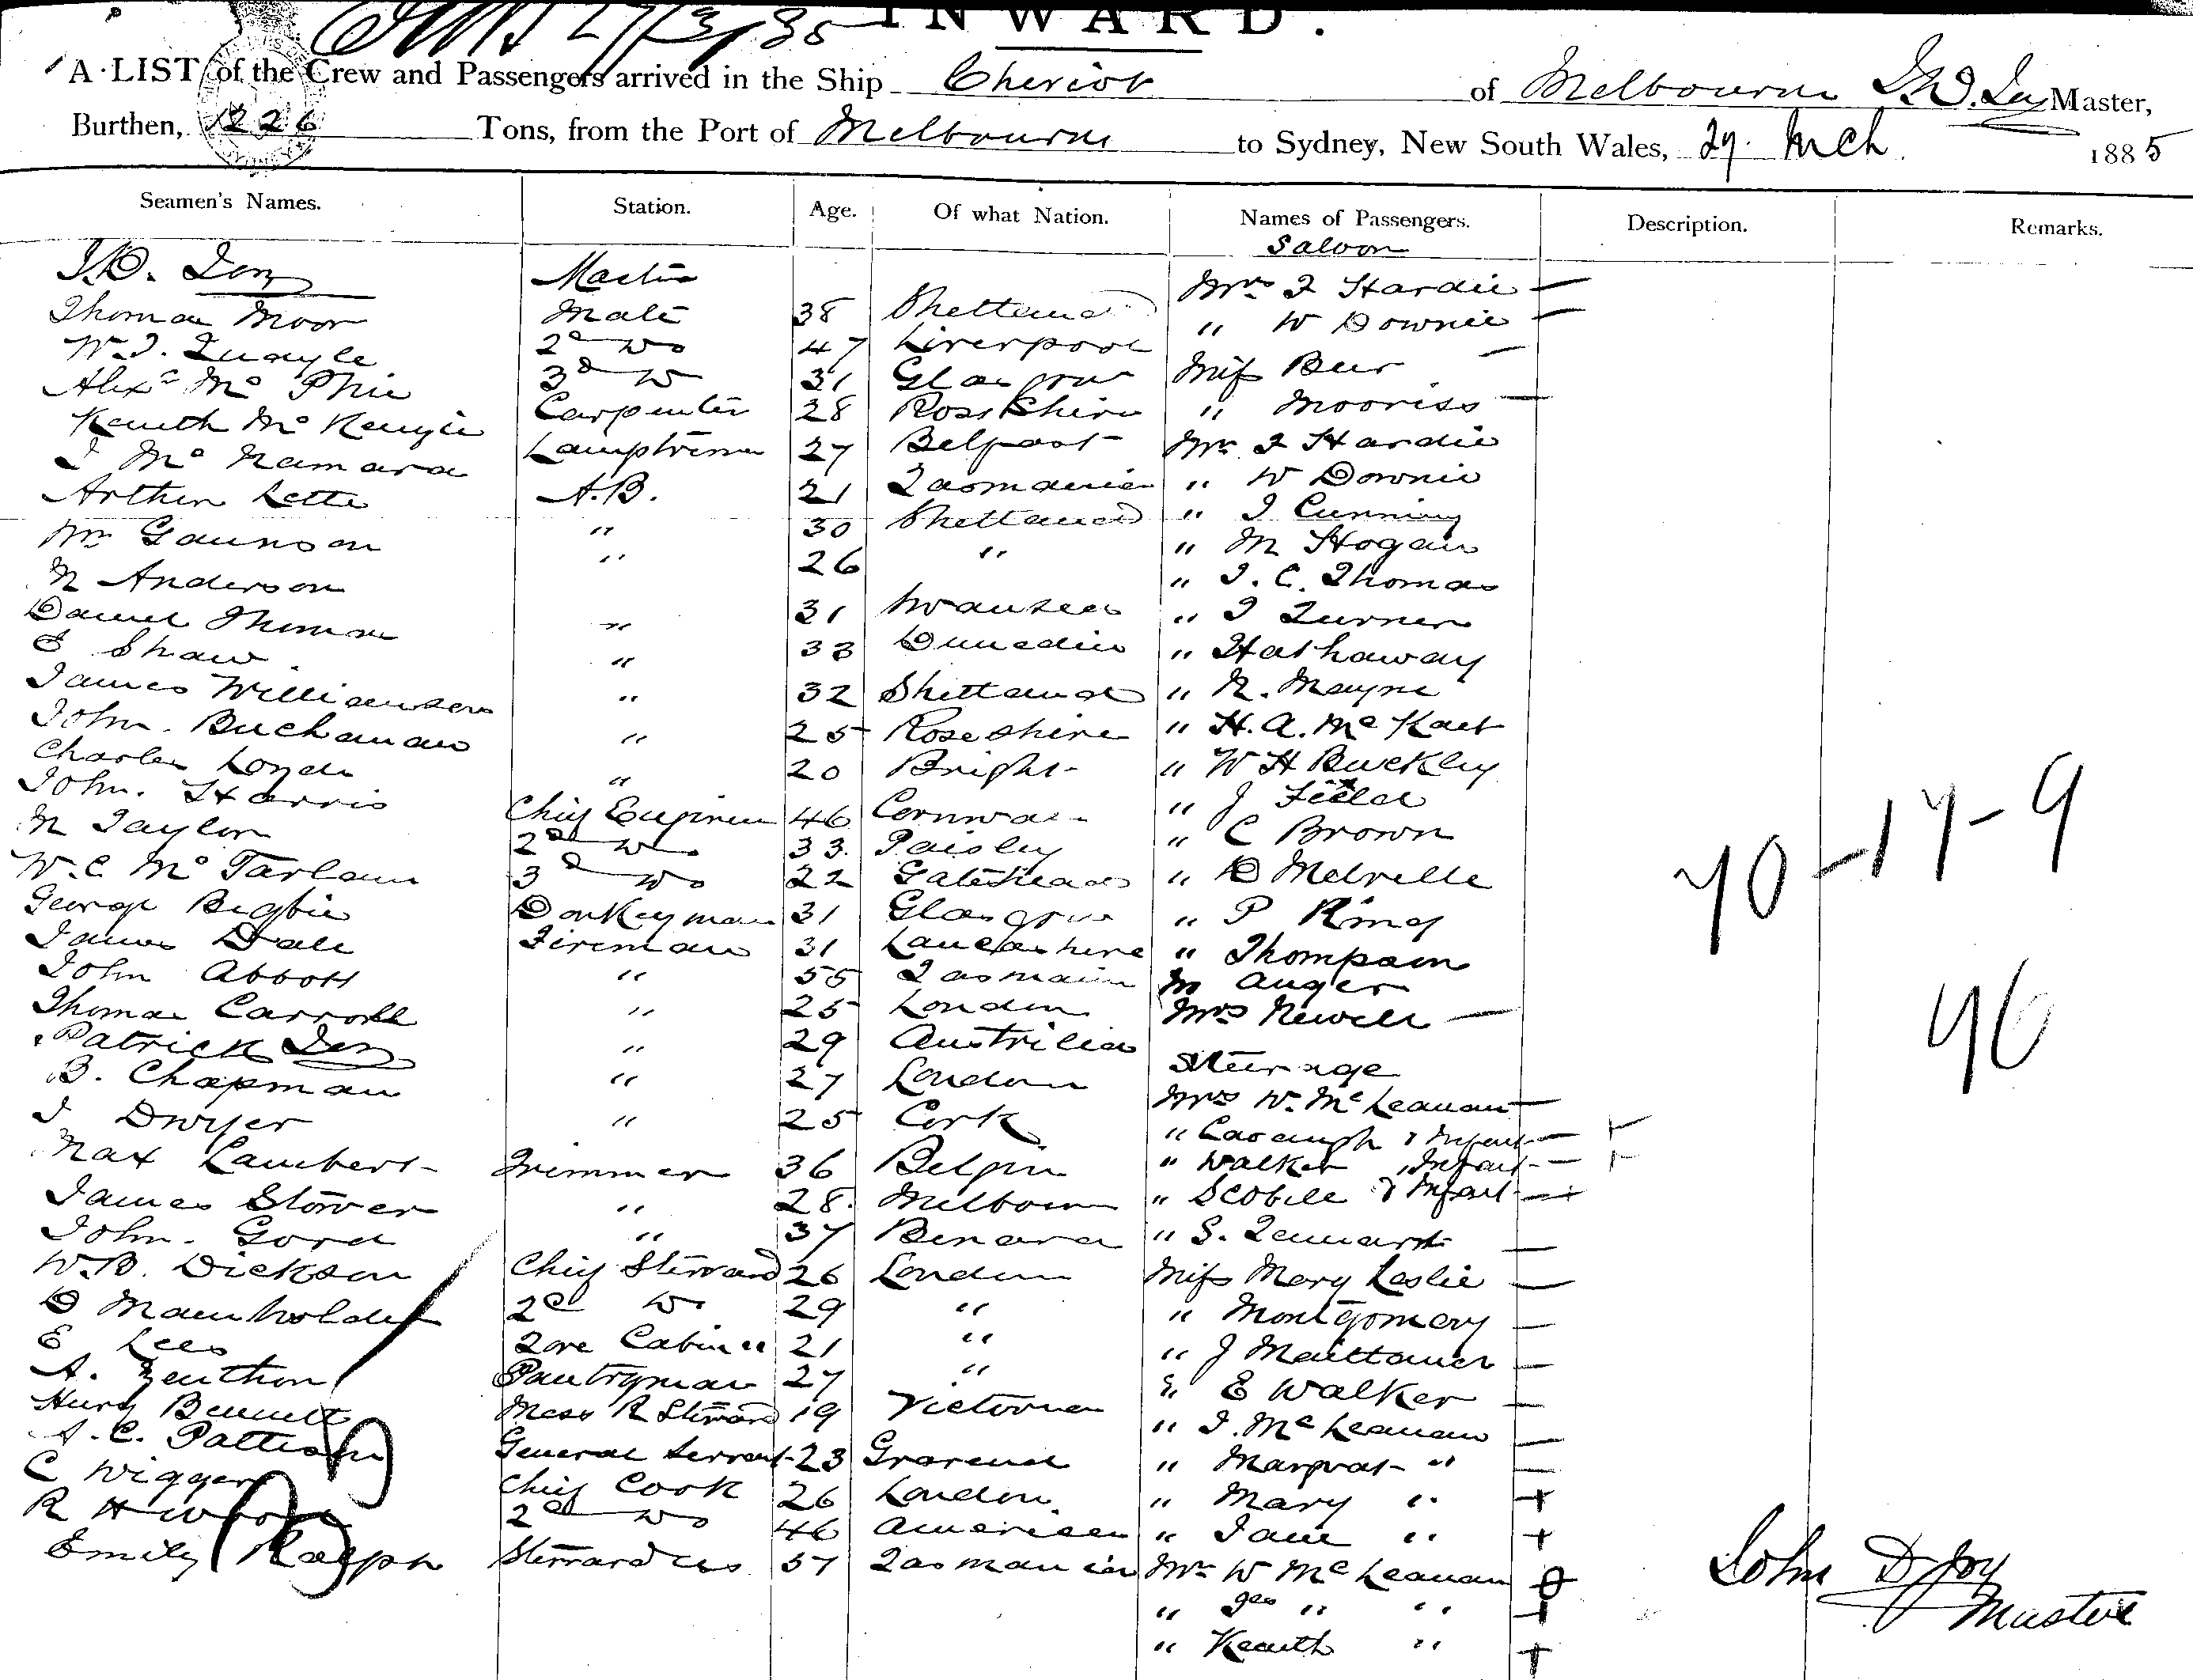 INWARD.
A LIST of the Crew and Passengers arrived in the Ship Cheviot of Melbourne J.D. Joy Master,
Burthen, 1226 Tons, from the Port of Melbourne to Sydney, New South Wales, 29 Mch 1885
Seamen's Names. Station. Age. Of what Nation. Names of Passengers. Description. Remarks.
Saloon
J.D. Joy Master Mrs J Hardie
Thomas Moor Mate 38 Shetland " W Downie
W.J. Quayle 2d Do 47 Liverpool Miss Beer
Alexr Mc Phie 3d Do 31 Glasgow " Mooriss
Kenith Mc Kenzie Carpenter 28 Ross Shire Mr J Hardie
J Mc Namara Lamptrimmer 27 Belfast " W Downie
Arthur Lette A.B. 21 Tasmania " J Cunning
Wm Gaunson " 30 Shetland " M Hogan
N Anderson " 26 " " J. C. Thomas
Daniel Thomas " 31 Swansea " J Turner
Shaw " 33 Dunedin " Hathaway
James Williamson " 32 Shetland " R. Mayne
John Buchanan " 25 Rose shire " H. A. Mc
Charles " 20 Bright " W H Buckley
John Harris Chief Engineer 46 Cornwall " J Field
N Taylor 2d Do 33 Paisley " C Brown
W. C Mc Farlane 3d Do 22 Gateshead " D Melville
George Bigbie Donkeyman 31 Glasgow " P King
James Dale Fireman 31 Lancashire " Thompson
John Abbott " 55 Tasmania M Auger
Thomas Carroll " 25 London Mrs Newell
Patrick Joy " 29 Australia
Steerage
B. Chapman " 27 London Mrs W. Mc Leanan
J Dwyer " 25 Cork " Cavanagh & Infant
Max Lambert Trimmer 36 Belgium " Walker " Infant
James Stower " 28 Melbourne " Scobile & Infant
John Gord " 37 " S. Tennant
W.B. Dickson Chief Steward 26 London Miss Mary Leslie
D 2d Do 29 " " Montgomery
E Lees Fore Cabin " 21 " " J
A. Zenthon Pantryman 27 " " E Walker
Henry Bennett Mess R Steward 19 Victoria " J. Mc Leanan
A. C. Pattison General Servant 23 Gravesend " Margrat "
C Wiggers Chief Cook 26 London " Mary "
R H 2d Do 46 American " Jane "
Emily Ralph Stewardess 57 Tasmania Mr W Mc Leanan
" Jas " "
" Kenith "
70-17-9
76
John D Joy
Master